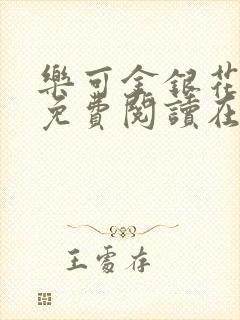 樂可金銀花
免費閱讀在
王雩存